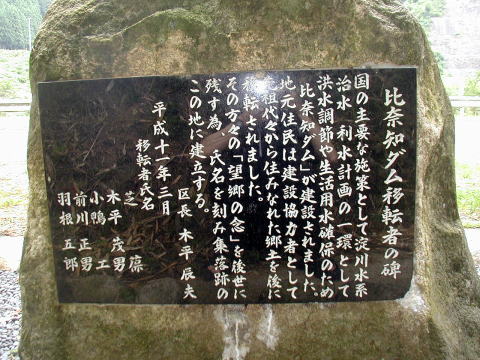 比奈知ダム移転者の碑
国の主要な施策として淀川水系
治水・利水計画の一環として
洪水調節や生活用水確保のため
比奈知ダム」が建設されました。
地元住民は建設協力者として
先祖代々から住みなれた郷土を後に
移転されました。
その方々の「望郷の念」を後世に
残す為、氏名を刻み集落跡の
この地に建立する。
区長 木平辰夫
平成十一年三月
移転者氏名
芝 葆
木平茂男
小鴨 工
前川正男
羽根五郎